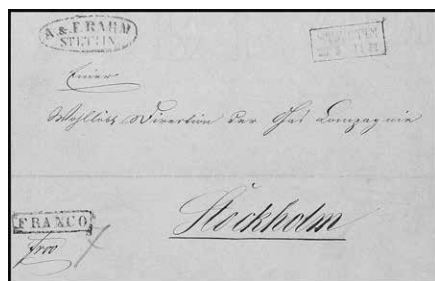 A. & F. RAHM
STETTIN
Einer
Wohllöbl. Direction der Gas Compagnie
Stockholm
FRANCO
frco